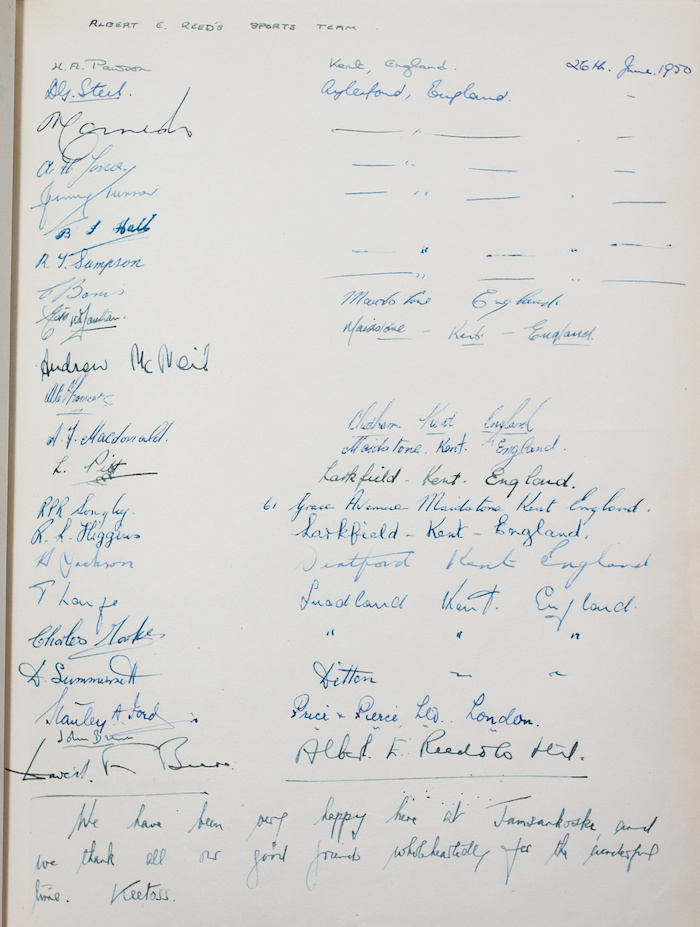 ALBERT E. REED'S SPORTS TEAM
H. A. Pawson Kent, England. 26th. June. 1950
Steel. Aylesford, England. -
— " — " —
A. H. — " — —
Jimmy — " — " —
B J Hall
R. T. Sampson — " — " —
— " — " —
Maidstone England
Maidstone - Kent - England.
Andrew McNeil
Chatham Kent England
A. J. Macdonald. Maidstone. Kent. England.
L. Larkfield - Kent. England.
RPR 61 Grace Avenue Maidstone Kent England.
R. L. Higgins Larkfield - Kent - England.
Jackson Dartford Kent England
T. Lange Kent. England.
Charles " " "
D. Summersett Ditton ~ ~
Stanley A. Ford Price & Pierce, Ltd. London.
John
David. F. Albert E Reed & Co Ltd.
We have been very happy here at Jamsankoski, and
we thank all our good friends wholeheartedly for the wonderful
time. Keetoss.